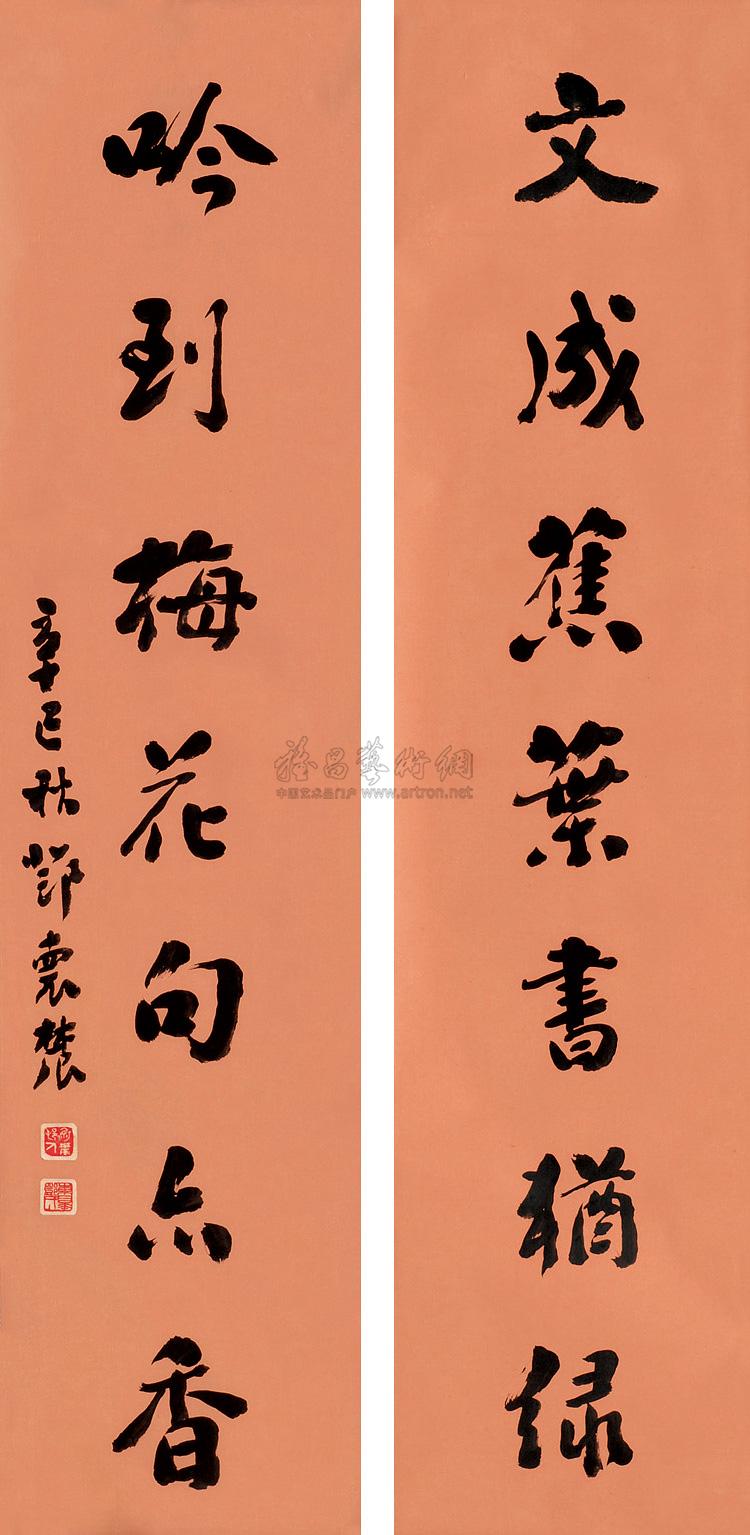 文成蕉葉書猶绿
吟到梅花句亦香
辛巳秋鄧
雅昌藝術網
中国艺术品门户 www.artron.net